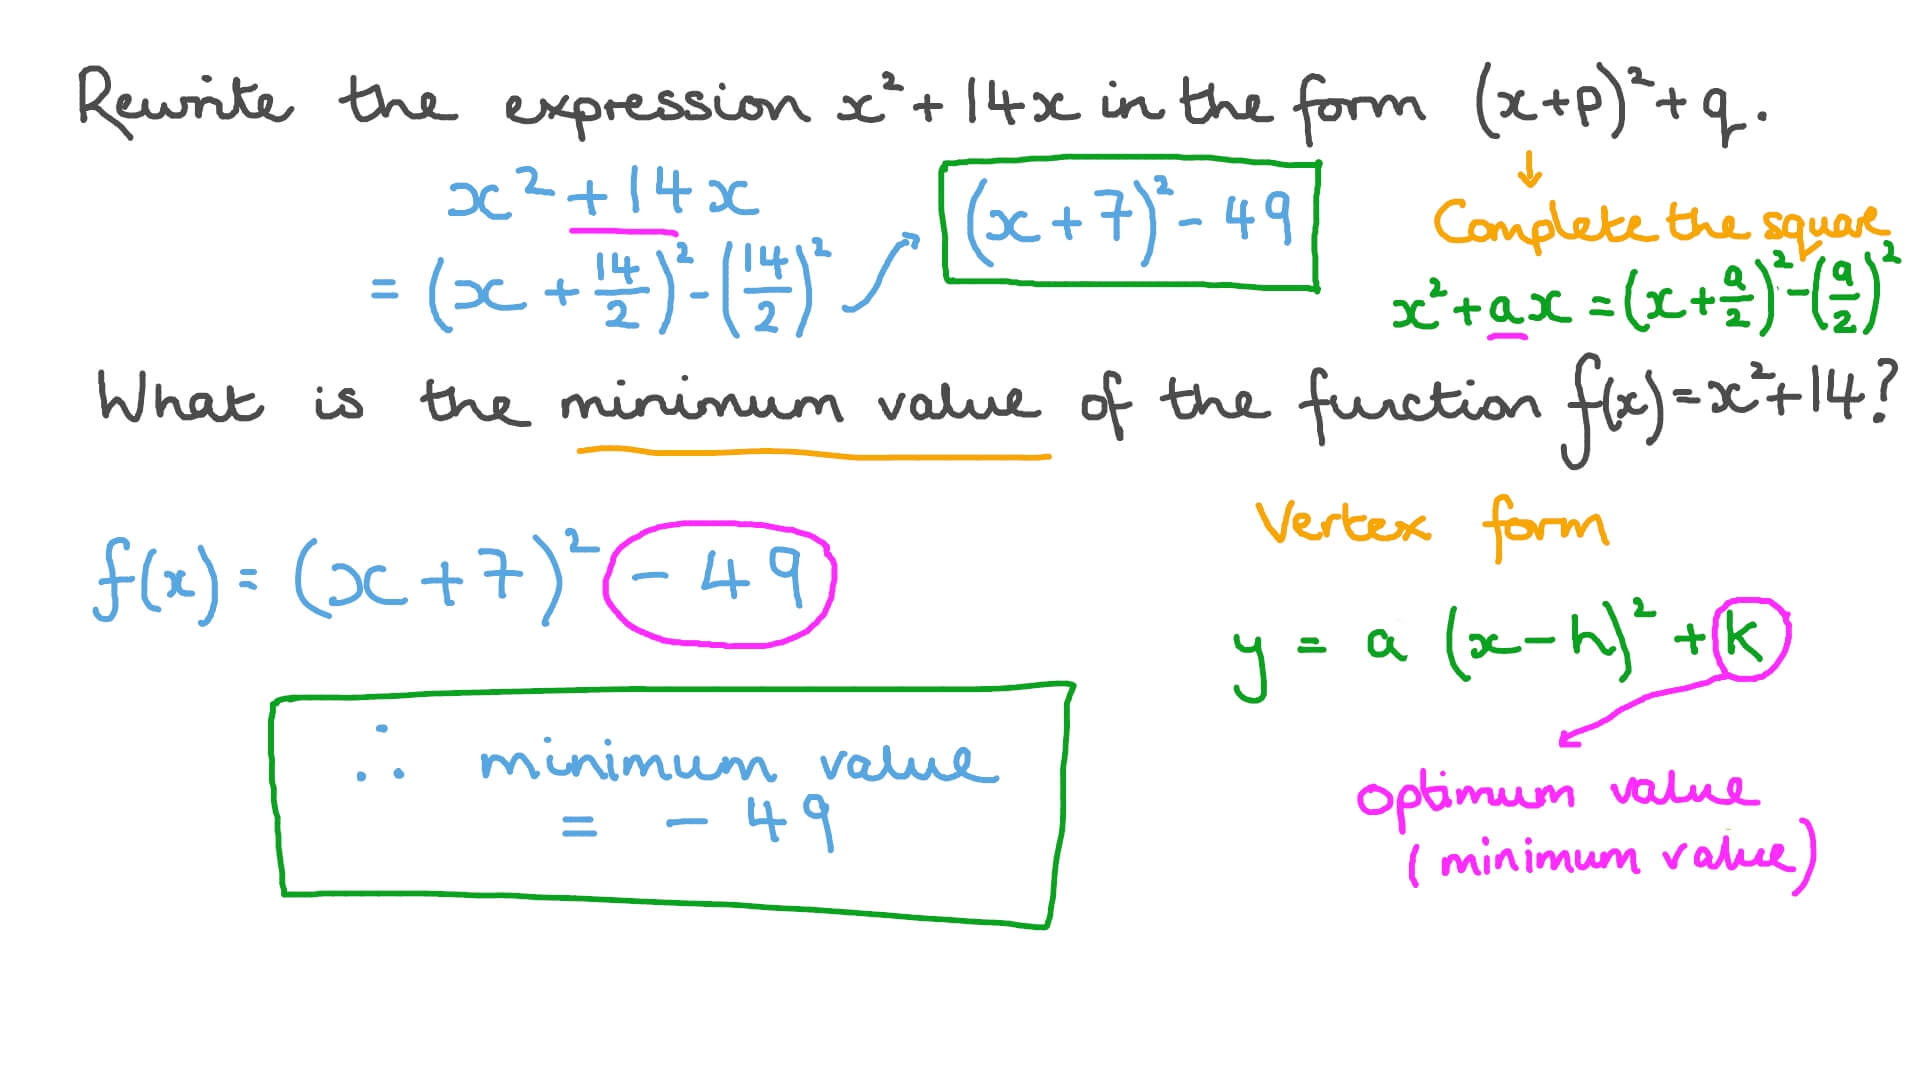 Rewrite the expression x²+14x in the form (x+p)²+q.
x²+14x
= (x+14/2)²-(14/2)²
(x+7)²-49
Complete the square
x²+ax=(x+a/2)²-(a/2)²
What is the minimum value of the function f(x)=x²+14?
f(x)=(x+7)²-49
∴ minimum value
= -49
Vertex form
y = a (x-h)²+k
optimum value
(minimum value)